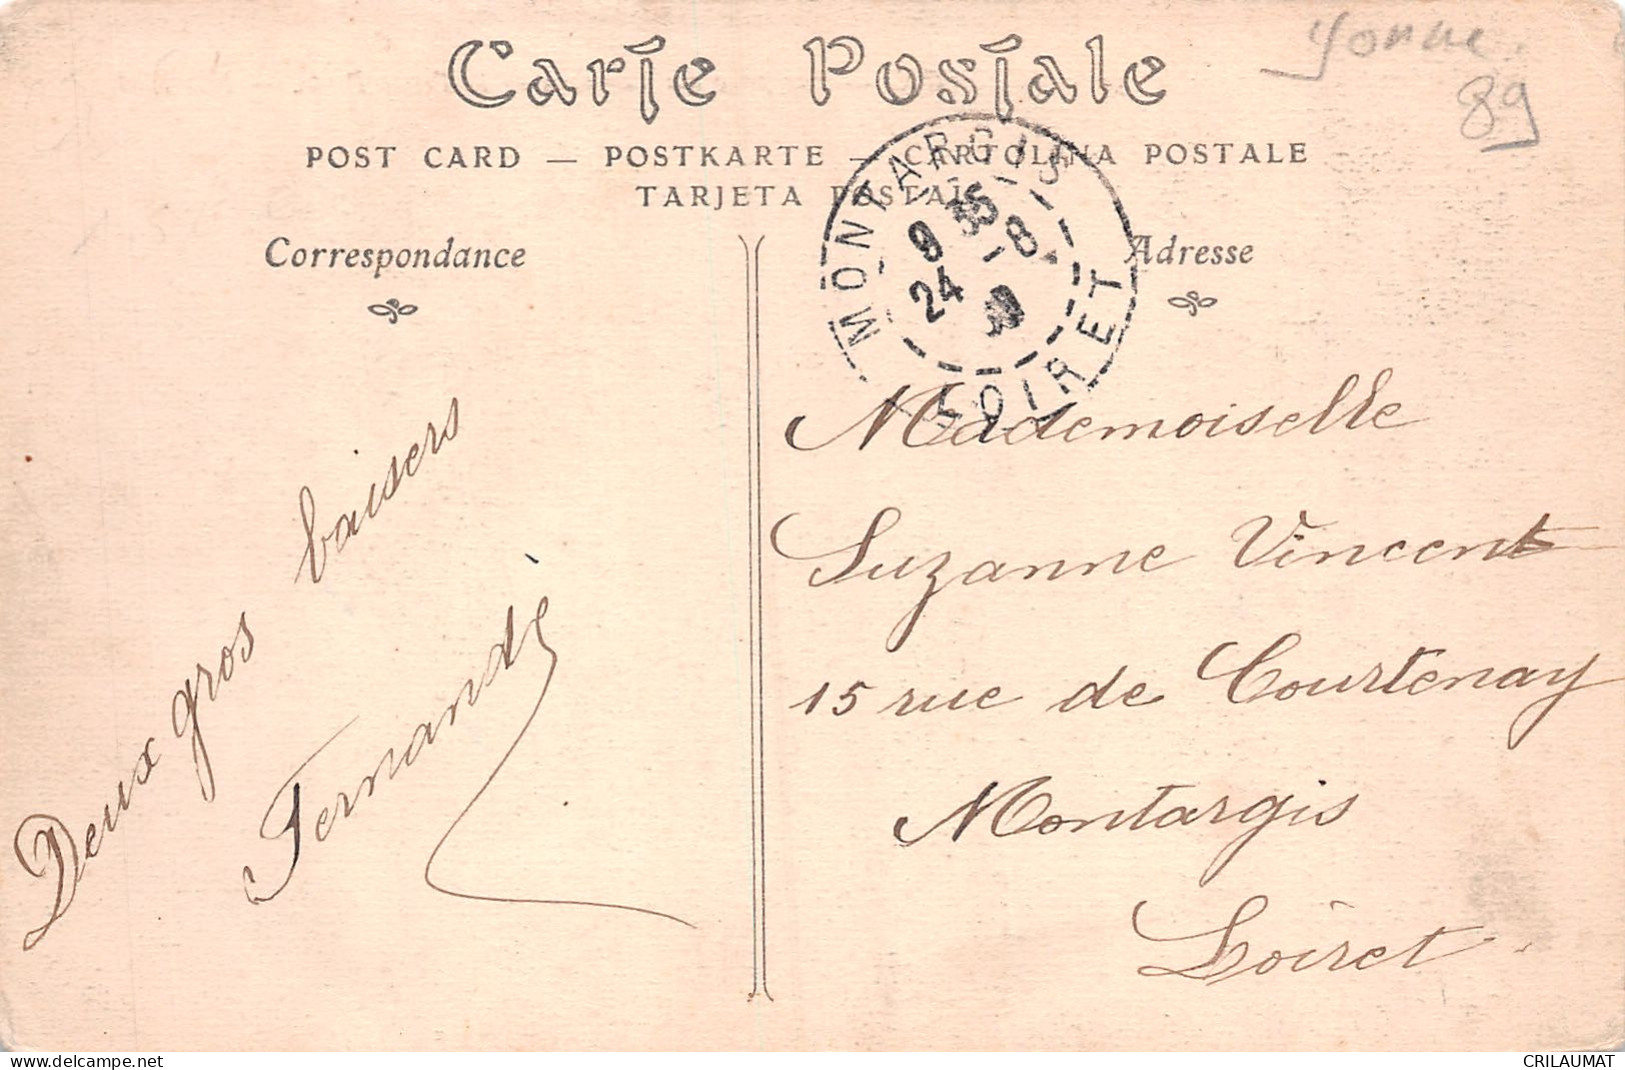 Yonne
89
Carte Postale
POST CARD — POSTKARTE — CARTOLINA POSTALE
TARJETA POSTAL
MONTARGIS
9 35
24 -8
LOIRET
Correspondance
Adresse
Deux gros baisers
Fernande
Mademoiselle
Suzanne Vincent
15 rue de Courtenay
Montargis
Loiret
www.delcampe.net
CRILAUMAT